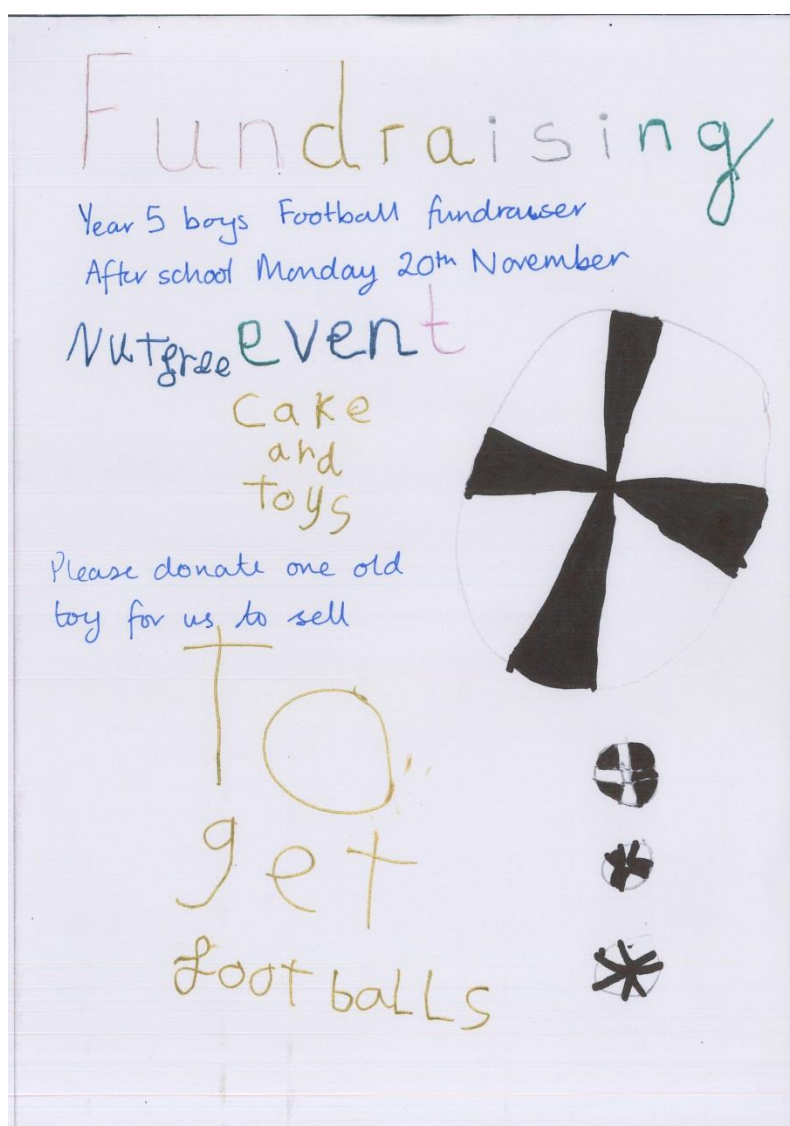 Fundraising
Year 5 boys Football fundraiser
After school Monday 20th November
Nutfree event
Cake
and
toys
Please donate one old
toy for us to sell
To
get
footballs